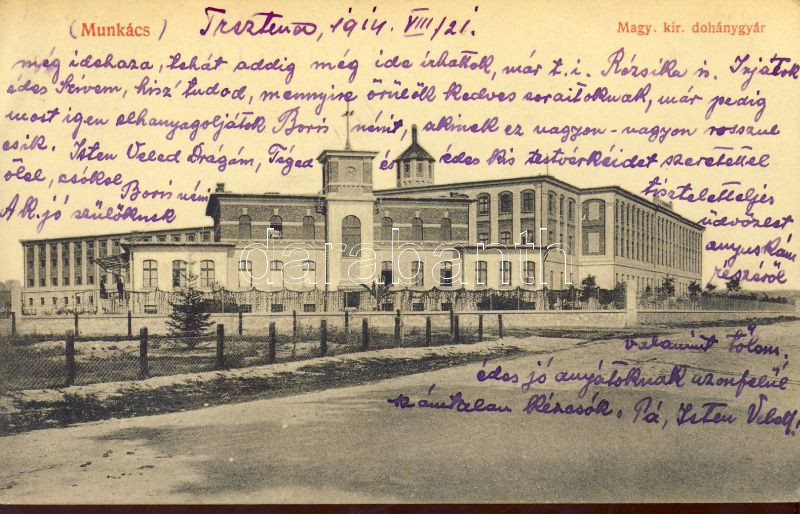 (Munkács) Trsztena, 1914. VIII/21.
Magy. kir. dohánygyár
még idehaza, tehát addig még ide írhattok, már t. i. Rózsika is. Irjátok
édes Szívem, hisz' tudod, mennyire örülök kedves soraitoknak, már pedig
most igen elhanyagoljátok Boris nénit, akinek ez nagyon-nagyon rosszul
esik. Isten Veled Drágám, Téged és édes kis testvérkéidet szeretettel
ölel, csókol Boris néni tiszteletteljes
A k. jó szülőknek üdvözlet
anyuskám
részéről
valamint tőlem,
édes jó anyátoknak azonfelül
számtalan kézcsók. Pá, Isten Veled!
darabanth